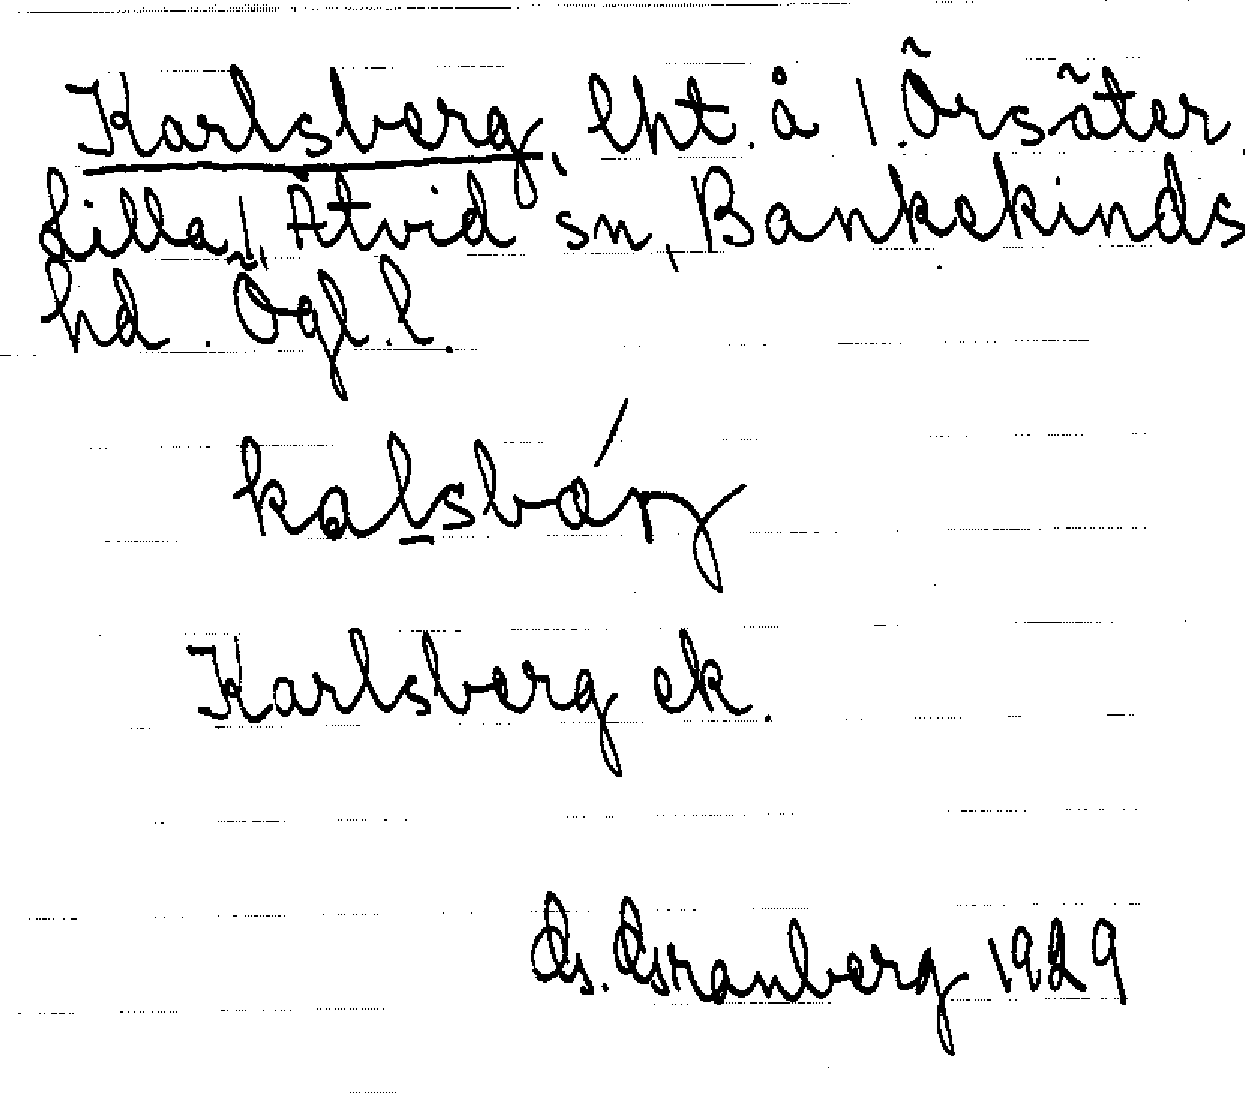 Karlsberg, lht. å 1 Örsäter
Lilla, Åtvid sn, Bankekinds
hd. Ögl. l.
kalsbárg
Karlsberg ek.
G. Granberg 1929